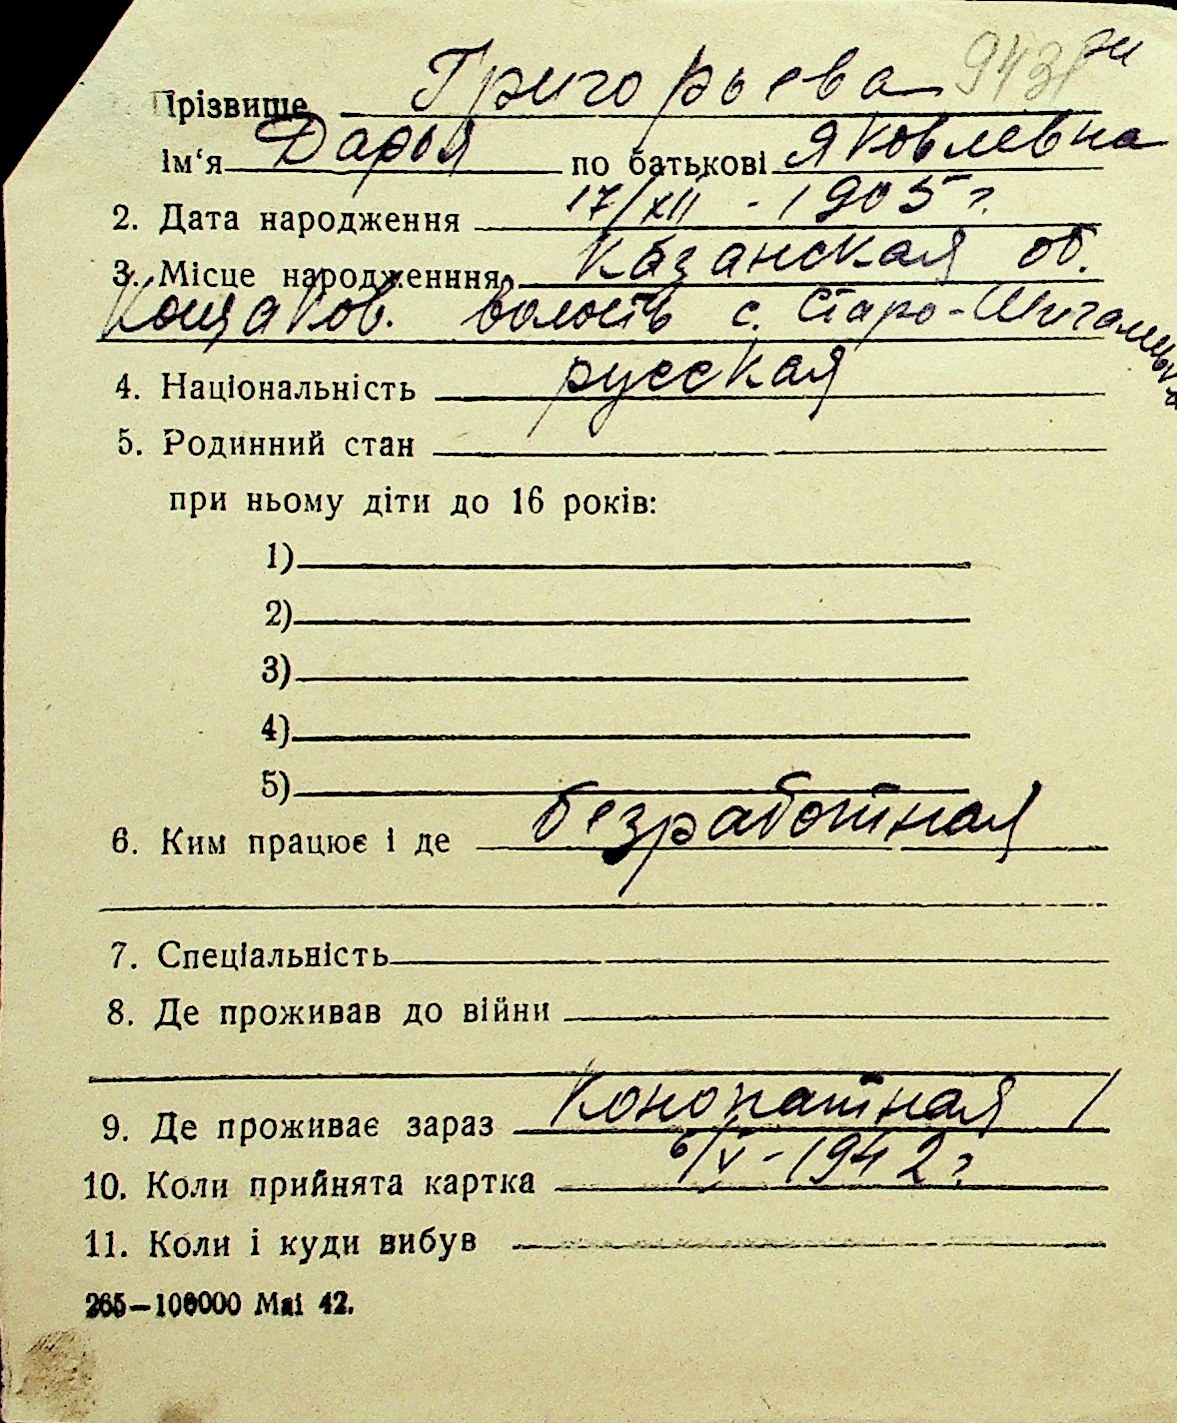 Прізвище Григорьева 943
Ім'я Дарья по батькові Яковлевна
2. Дата народження 17/XII - 1905 г.
3. Місце народженння Казанская об.
Кощаков. волость с. Старо-Шигалеево
4. Національність русская
5. Родинний стан
при ньому діти до 16 років:
1)
2)
3)
4)
5)
6. Ким працює і де безработная
7. Спеціальність
8. Де проживав до війни
9. Де проживає зараз Конопатная 1
10. Коли прийнята картка 6/V - 1942 г
11. Коли і куди вибув
265—100000 Маі 42.